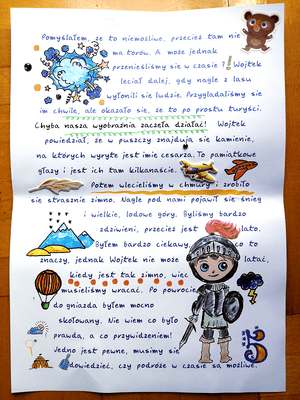 Pomyślałem, że to niemożliwe, przecież tam nie
ma torów. A może jednak
przenieśliśmy się w czasie? Wojtek
leciał dalej, gdy nagle z lasu
wyłonili się ludzie. Przyglądaliśmy się
im chwilę, ale okazało się, że to po prostu turyści.
Chyba nasza wyobraźnia zaczęła działać! Wojtek
powiedział, że w puszczy znajdują się kamienie,
na których wyryte jest imię cesarza. To pamiątkowe
głazy i jest ich tam kilkanaście.
Potem wlecieliśmy w chmury i zrobiło
się strasznie zimno. Nagle pod nami pojawił się śnieg
i wielkie, lodowe góry. Byliśmy bardzo
zdziwieni, przecież jest lato.
Byłem bardzo ciekawy, co to
znaczy, jednak Wojtek nie może latać,
kiedy jest tak zimno, więc
musieliśmy wracać. Po powrocie
do gniazda byłem mocno
skołowany. Nie wiem co było
prawdą, a co przywidzeniem!
Jedno jest pewne, musimy się
dowiedzieć, czy podróże w czasie są możliwe.